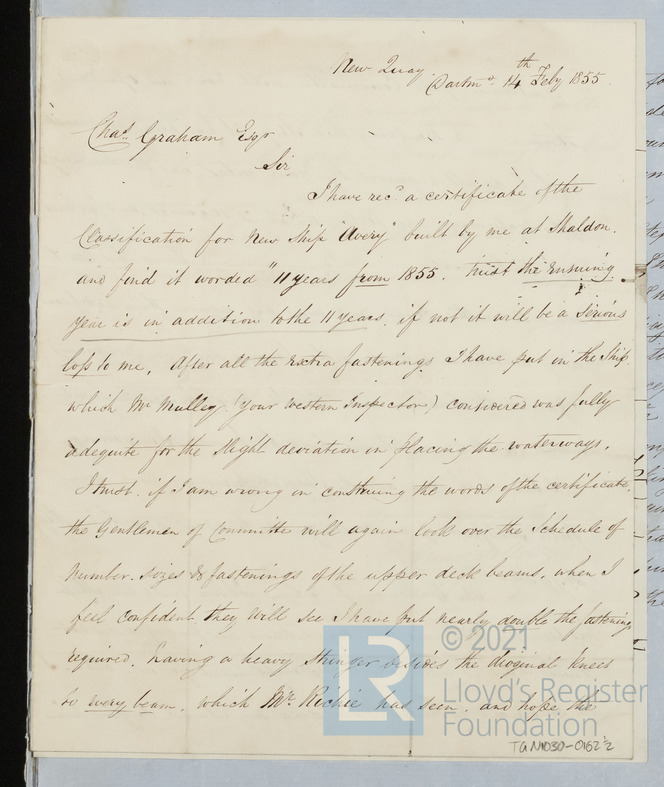 New Quay
Dartmo. 14th Feby 1855.
Chas. Graham Esqr
Sir
I have recd. a certificate of the
Classification for New Ship "Avery" built by me at Shaldon.
and find it worded "11 years from 1855. trust the ensuing
year is in addition to the 11 years. if not it will be a serious
loss to me, After all the extra fastenings I have put in the Ship.
which Mr Mulley (your western Inspector) considered was fully
adequite for the slight deviation in placing the waterways.
I trust. if I am wrong in construing the words of the certificate.
the Gentlemen of Committe will again look over the Schedule of
Number. sizes & fastenings of the upper deck beams, when I
feel confident they will see I have put nearly double the fastening
required. having a heavy Stringer besides the diagonal knees
to every beam. which Mr. Richie has seen. and hope the
© 2021
Lloyd's Register
Foundation
LR
TGN1030-0162½